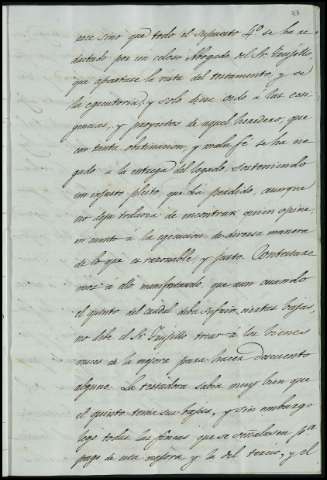 nece sino que todo el supuesto 4º se ha re-
dactado por un celoso Abogado del Sr. Trujillo,
que apartose la vista del testamento, y de
la egecutoria, y solo tiene oído á las con-
gruencias, y proyectos de aquel heredero, que
con tanta obstinacion, y mala fé se ha ne-
gado á la entrega del legado, sosteniendo
un injusto pleito que ha perdido, aunque
no deja todavia de encontrar quien opine
en cuanto á la egecucion de diversa manera
de lo que es razonable, y justo. Contestare-
mos á ello manifestando, que aun cuando
el quinto del caudal deba sufrir ciertas bajas,
no debe el Sr. Trujillo traer á los bienes
raices de la mejora para hacer descuento
alguno. La testadora sabia muy bien que
el quinto tiene sus bajas, y sin embargo
legó todas las fincas que se señalasen pª
pago de una mejora y la del tercio, y el